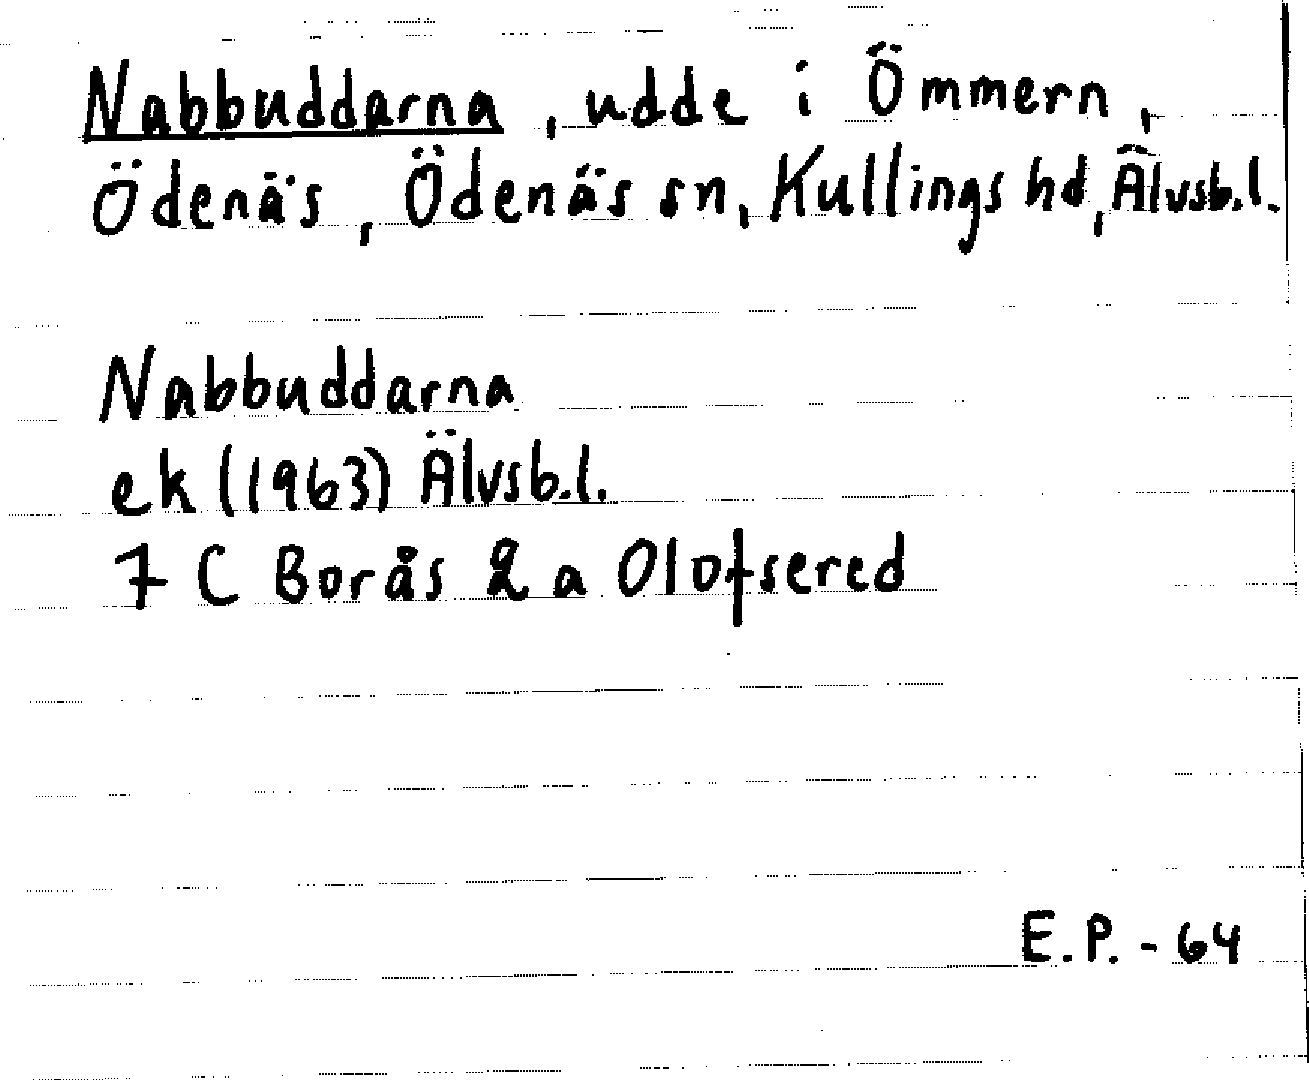 Nabbuddarna, udde i Ömmern,
Ödenäs, Ödenäs sn, Kullings hd, Älvsb.l.
Nabbuddarna
ek (1963) Älvsb.l.
7 C Borås 2 a Olofsered
E.P. - 64